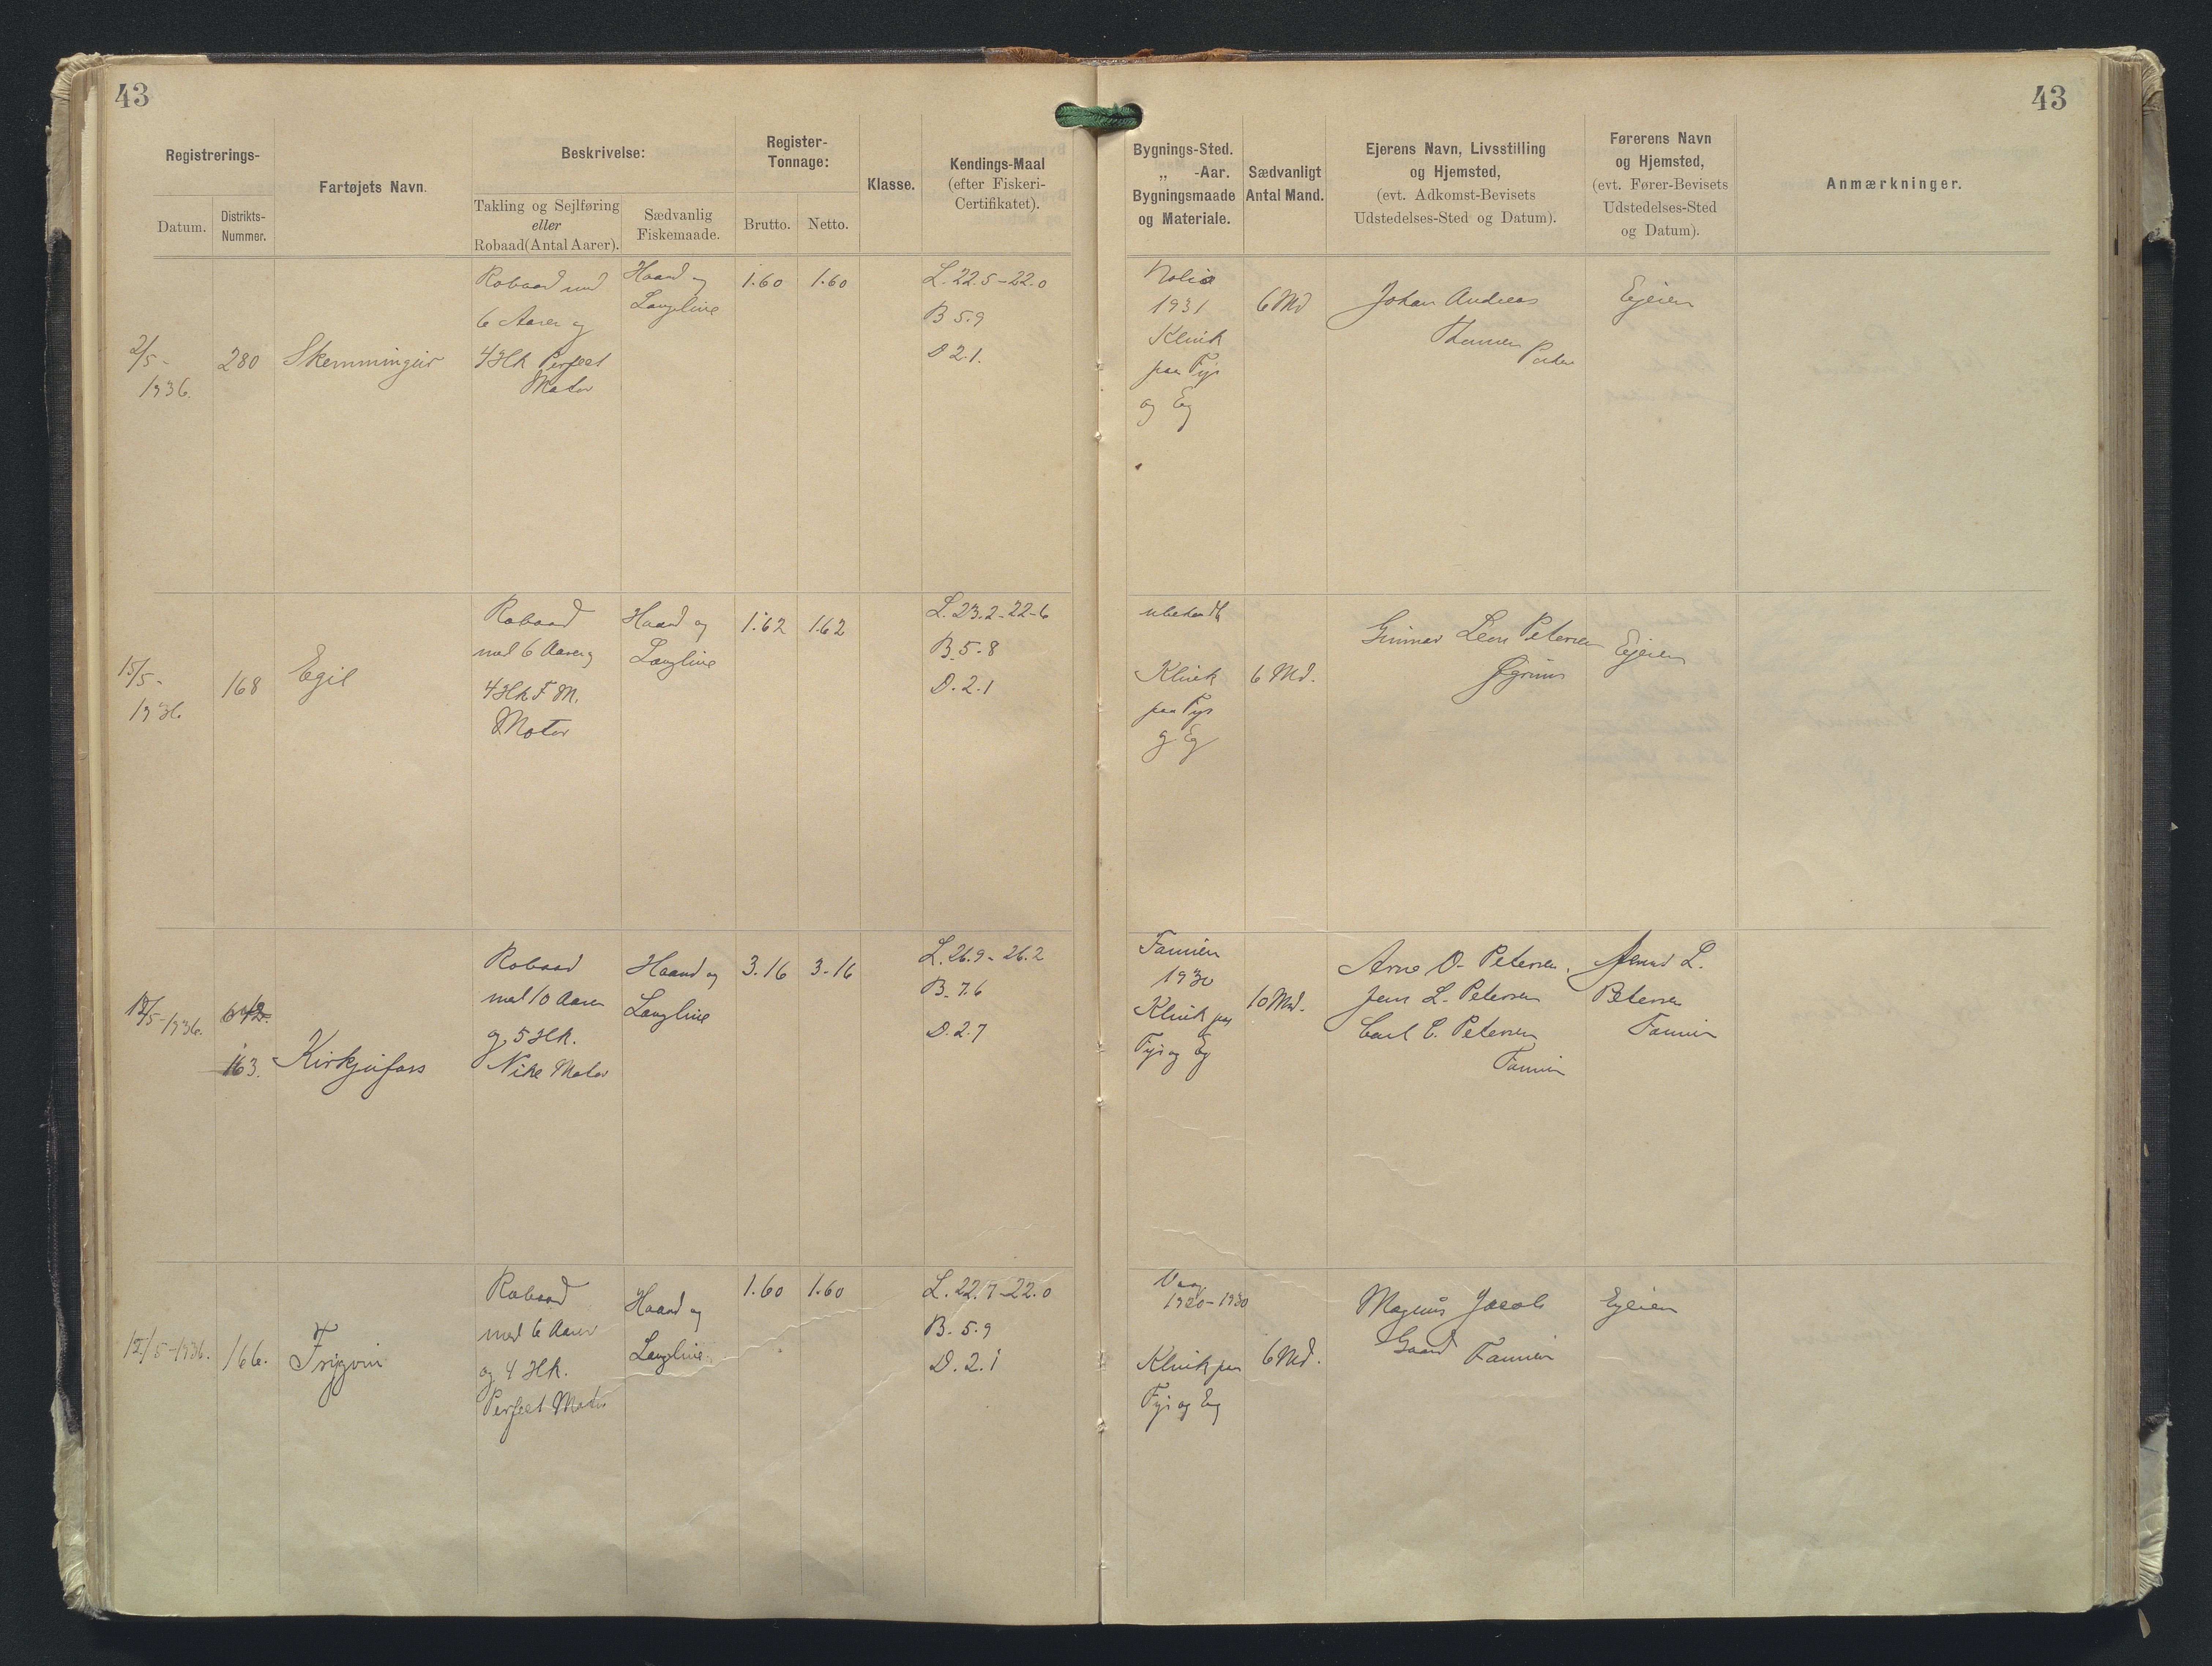 43
43
Registrerings-
Datum.
Distrikts-
Nummer.
Fartøjets Navn.
Beskrivelse:
Takling og Sejlføring
eller
Robaad(Antal Aarer).
Sædvanlig
Fiskemaade.
Register-
Tonnage:
Brutto.
Netto.
Klasse.
Kendings-Maal
(efter Fiskeri-
Certifikatet).
Bygnings-Sted.
„ -Aar.
Bygningsmaade
og Materiale.
Sædvanligt
Antal Mand.
Ejerens Navn, Livsstilling
og Hjemsted,
(evt. Adkomst-Bevisets
Udstedelses-Sted og Datum).
Førerens Navn
og Hjemsted,
(evt. Fører-Bevisets
Udstedelses-Sted
og Datum).
Anmærkninger.
2/5-
1936.
280
Skemmingur
Robaad med
6 Aarer og
4 Hk Perfect
Motor
Haand og
Langline
1.60
1.60
L. 22.5-22.0
B 5.9
D 2.1.
1931
Klink
paa Fyr
og Eg
6 Md
Johan Andreas
Ejeren
15/5-
1936
168
Egil
Robaad
med 6 Aarer og
4 Hk F. M.
Motor
Haand og
Langline
1.62
1.62
L. 23.2-22-6
B. 5.8
D. 2.1
ubekendt
Klink
paa Fyr
og Eg
6 Md.
Gunnar Leon Petersen
Ejeren
/5-1936.
163.
Kirkjufoss
Robaad
med 10 Aarer
og 5 Hk.
Motor
Haand og
Langline
3.16
3-16
L. 26.9-26.2
B. 7.6
D. 2.7
Famien
1930
Klink paa
Fyr og Eg
10 Md.
Arne O. Petersen.
Jens L. Petersen
Carl C. Petersen
Famien
L.
Petersen
Famien
12/5-1936.
166.
Robaad
med 6 Aarer
og 4 Hk.
Perfect Motor
Haand og
Langline
1.60
1.60
L. 22.7-22.0
B. 5.9
D. 2.1
Vaag
1920-1930
Klink paa
Fyr og Eg
6 Md.
Magnus Jacob
Famien
Ejeren